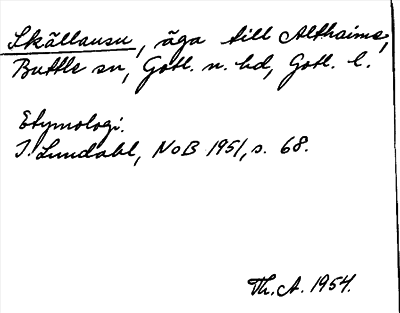 Skällausu, äga till Althaims,
Buttle sn, Gotl. n. hd, Gotl. l.
Etymologi.
I. Lundahl, NoB 1951, s. 68.
Th. A. 1954.